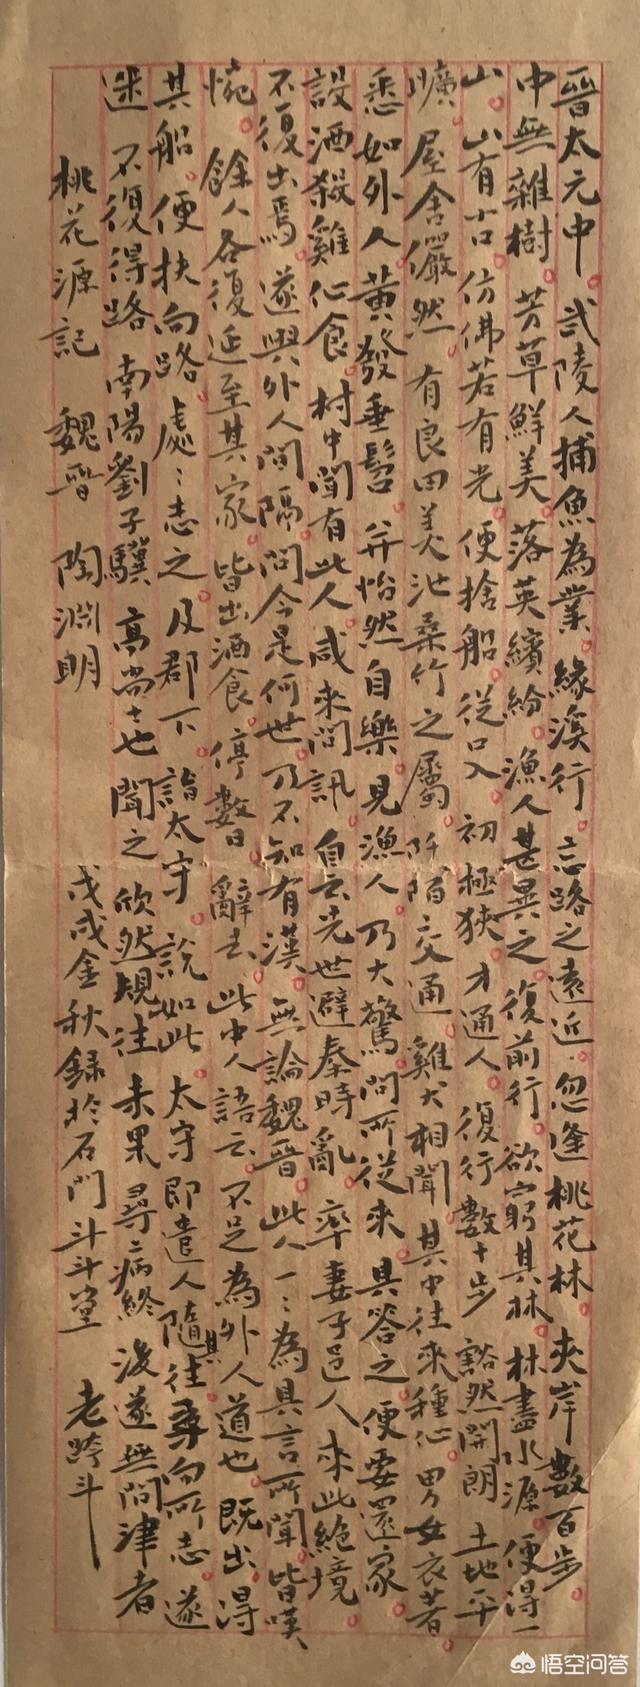 晉太元中。武陵人捕魚為業。緣溪行。忘路之遠近。忽逢桃花林。夾岸數百步。
中無雜樹。芳草鮮美。落英繽紛。漁人甚異之。復前行。欲窮其林。林盡水源。便得一
山。山有古。仿佛若有光。便捨船。從口入。初極狹。才通人。復行數十步 豁然開朗 土地平
曠。屋舍儼然 有良田美池桑竹之屬。阡陌交通 雞犬相聞 其中往來種作 男女衣著
悉如外人 黃發垂髫。并怡然自樂。見漁人乃大驚。問所從來。具答之。便要還家。
設酒殺雞作食。村中聞有此人。咸來問訊。自云先世避秦時亂。率妻子邑人 來此絕境。
不復出焉。遂與外人間隔。問今是何世。乃不知有漢。無論魏晉。此人一〻為具言所聞。皆嘆
惋。餘人各復延至其家。皆出酒食。停數日。辭去。此中人語云。不足為外人道也。既出得
其船。便扶向路。處〻志之。及郡下。詣太守。說如此。太守即遣人隨其往尋向所志。遂
迷 不復得路 南陽劉子驥 高尚士也 聞之 欣然規往 未果 尋〻病終 後遂無問津者
桃花源記 魏晉 陶淵明 戊戌金秋錄於石門斗斗堂 老跨斗
悟空问答